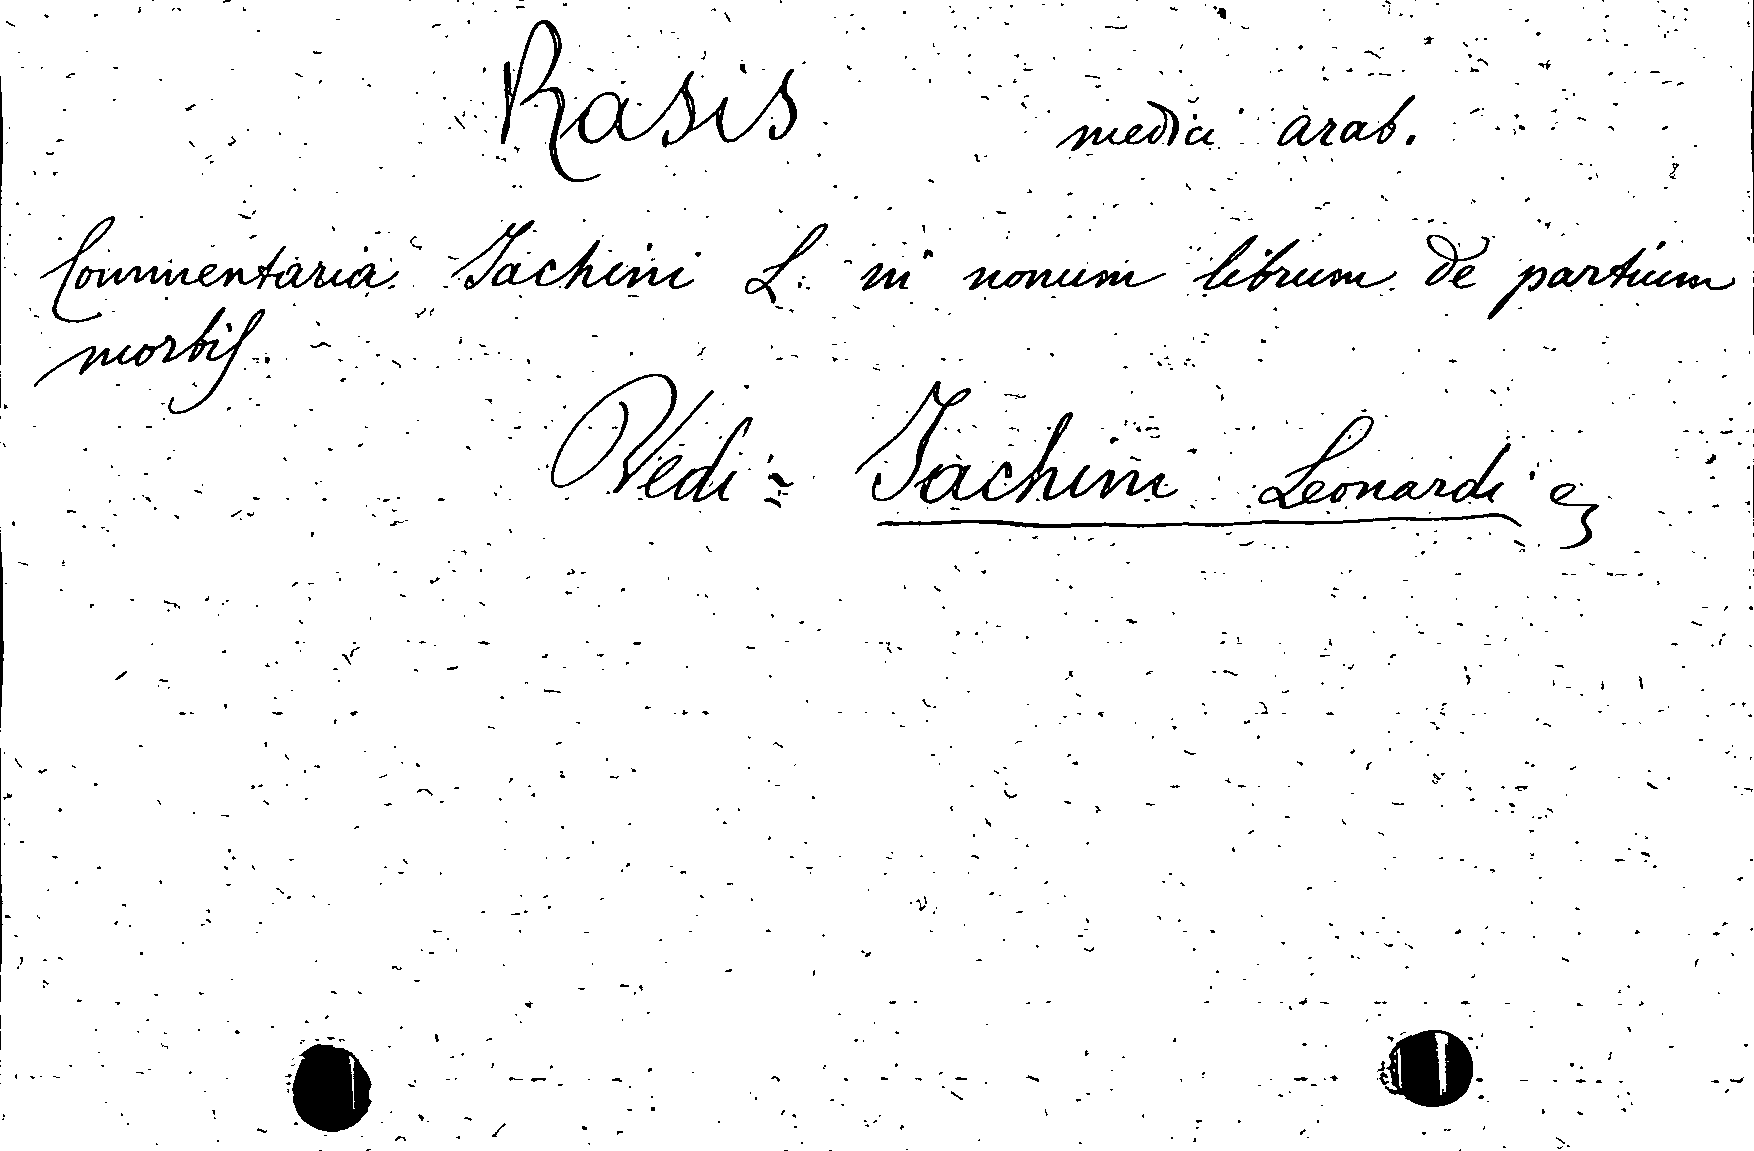 Rasis medici arab.
Commentaria Jachini L. in nonum librum de partium
morbis.
Vedi = Jachini Leonardi